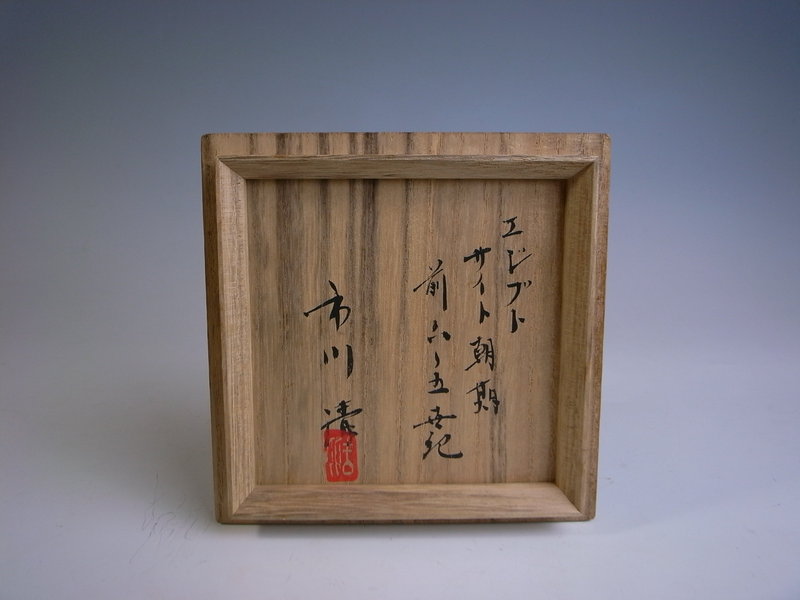 エジプト
サイト朝期
前六〜五世紀
市川 清